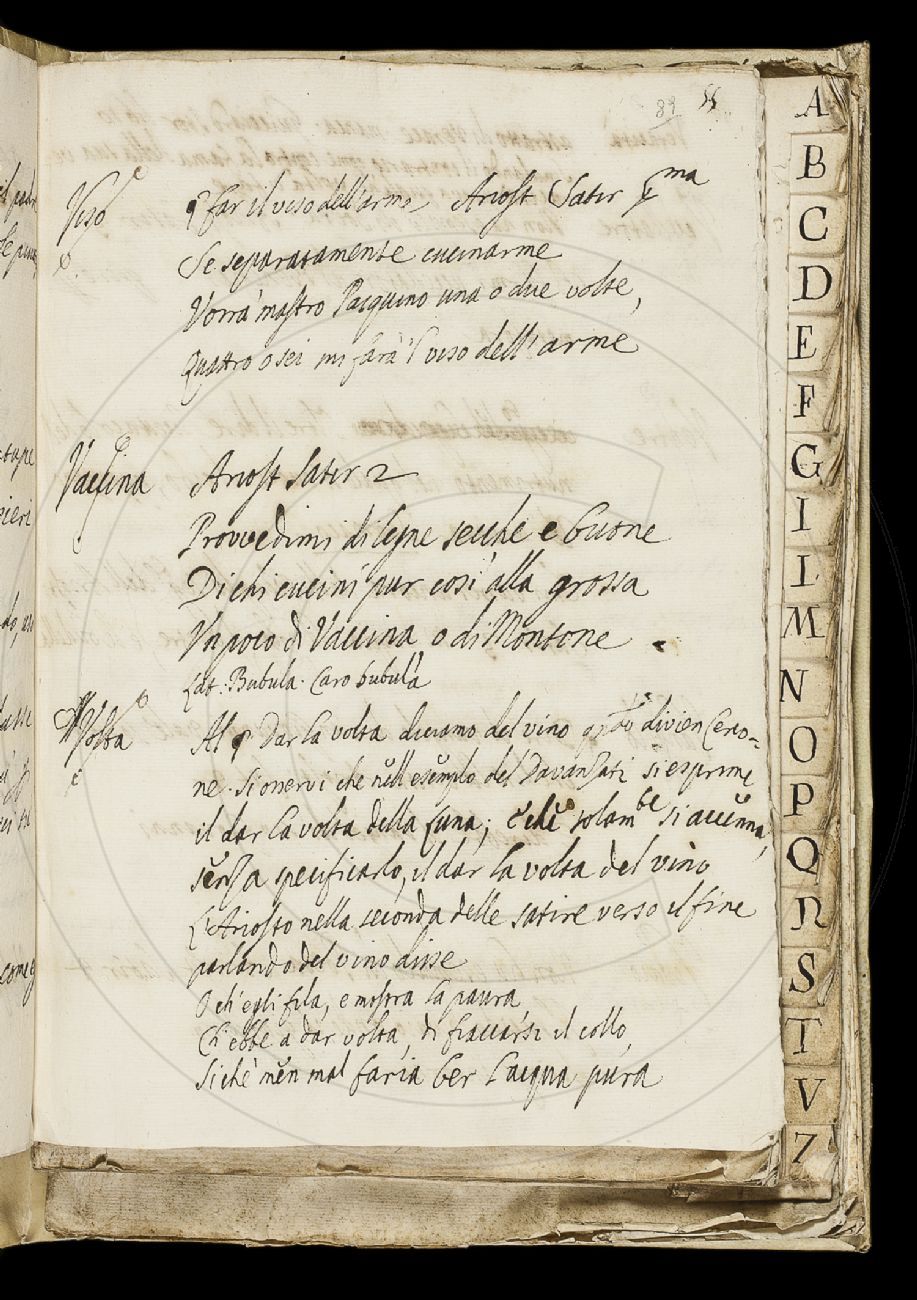 89
Viso
§ far il viso dell'arme Ariost Satir pma
Se separatamente cucinarme
Vorrà mastro Pasquino una o due volte,
Quattro o sei mi farà 'l viso dell'arme
Vaccina Ariost Satir 2
Provvedimi di legne secche e buone
Di chi cucini pur così alla grossa
Un poco di Vaccina, o di Montone
Lat. Bubula. Caro bubula
Volta
Al § Dar la volta diciamo del vino qndo divien Cerco=
ne. Si onervi che nell esemplo del Davanzati si esprime
il dar la volta della Luna; e che solamte si accenna,
senza specificarlo, il dar la volta del vino
L'Ariosto nella seconda delle satire verso il fine
parlando del vino disse
O ch'egli fila, e mostra la paura
Ch'ebbe a dar volta, di fiaccarsi il collo,
Sichè men mal faria ber l'acqua pura
A
B
C
D
E
F
G
I
L
M
N
O
P
Q
R
S
T
V
Z